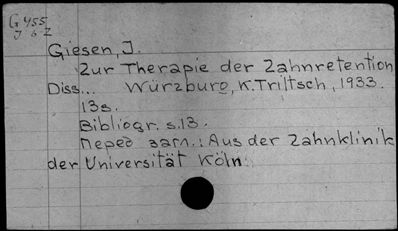 G 455
J 6 Z
Giesen, J.
Zur Therapie der Zahnretention
Diss... Würzburg, K. Triltsch, 1933.
13s.
Bibliogr. s.13.
Перед загл.: Aus der Zahnklinik
der Universität Köln.